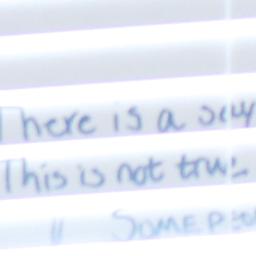 There is a say
This is not true.
" SOME